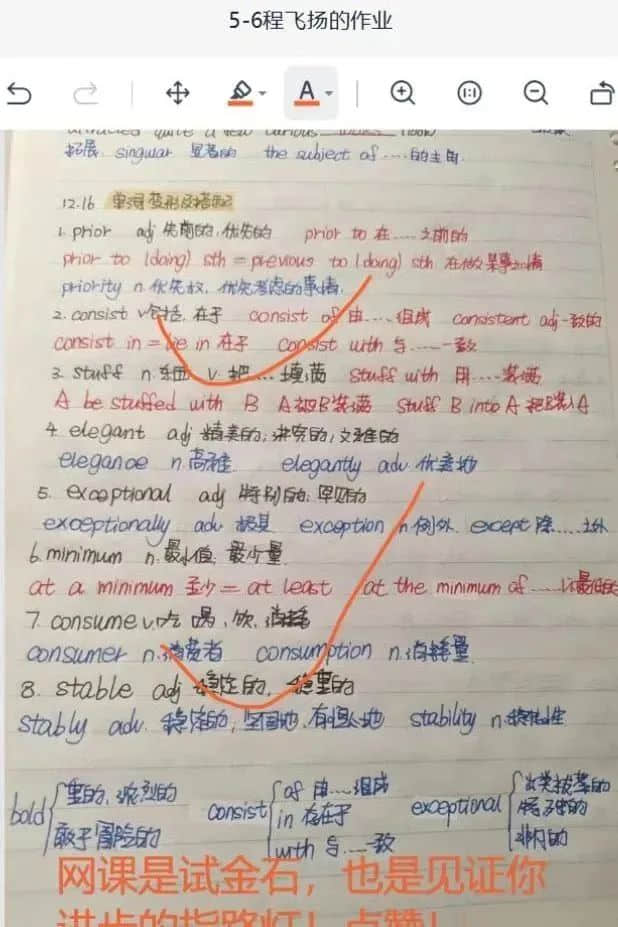 5-6程飞扬的作业
A
1:1
拓展 singular 显著的 the subject of ……的主因
12.16 单词变形及搭配
1. prior adj 先前的,优先的 prior to 在……之前的
prior to (doing) sth = previous to (doing) sth 在做某事之情
priority n.优先权,优先考虑的事情.
2. consist v包括,在于 consist of 由……组成 consistent adj一致的
consist in = lie in 在于 consist with 与……一致
3. stuff n. v. 把……填满 stuff with 用……装满
A be stuffed with B A把B装满 stuff B into A 把B装入A
4. elegant adj 精美的;讲究的;文雅的
elegance n.高雅 elegantly adv.优美地
5. exceptional adj 特别的;罕见的
exceptionally adv. 极其 exception n.例外. except 除……之外
6. minimum n.最小值,最少量.
at a minimum 至少 = at least at the minimum of ……以最低的
7. consume v.吃,喝,饮,消耗
consumer n.消费者 consumption n.消耗量.
8. stable adj 稳定的,稳重的
stably adv. 稳定的;坚固地,有恒心地 stability n.稳固性
bold 重的,浓烈的
敢于冒险的
consist of 由……组成
in 存在于
with 与……一致
exceptional 出类拔萃的
特殊的
非凡的
网课是试金石，也是见证你
进步的指路灯！点赞！